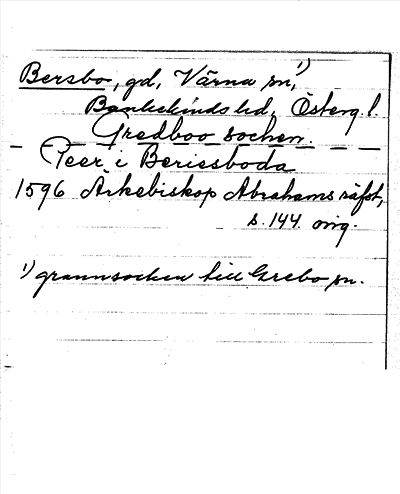 Bersbo, gd, Värna sn,¹⁾
Bankekinds hd, Österg. l.
Gredboo sochen.
Peer i Beriesboda
1596 Ärkebiskop Abrahams räfst,
s. 144. orig.
¹⁾ grannsocken till Grebo sn.